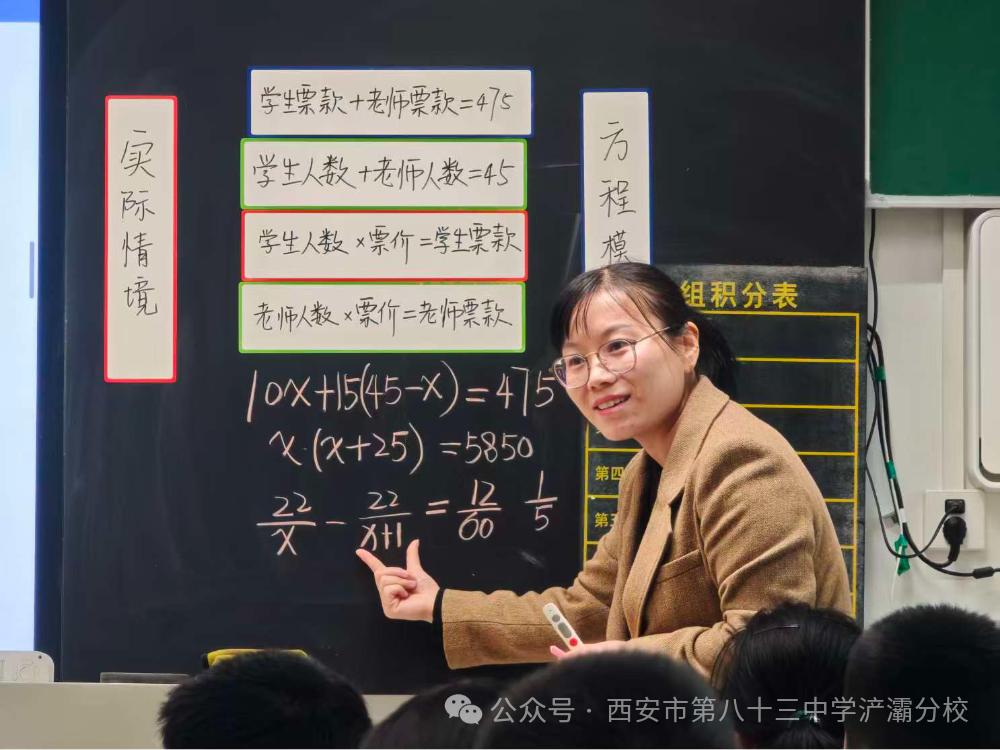 实际情境
学生票款+老师票款=475
学生人数+老师人数=45
学生人数×票价=学生票款
老师人数×票价=老师票款
方程模
10x+15(45-x)=475
x·(x+25)=5850
22/x - 22/(x+1) = 12/60 1/5
组积分表
第四
第
公众号·西安市第八十三中学浐灞分校